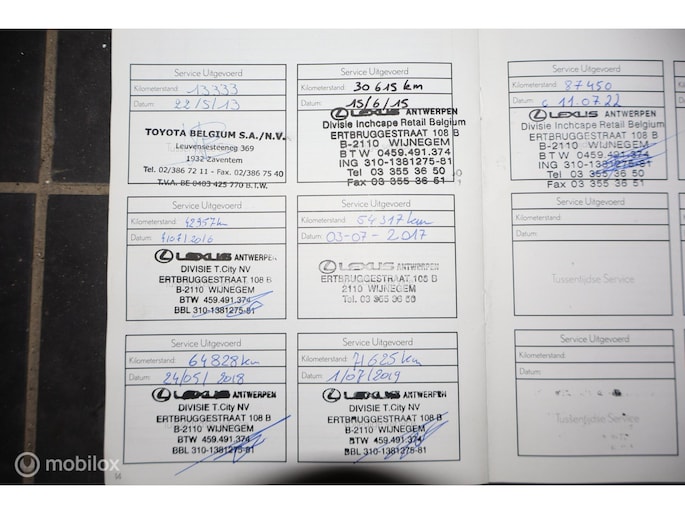 Service Uitgevoerd
Kilometerstand: 13333
Datum: 22/5/13
TOYOTA BELGIUM S.A./N.V.
Leuvensesteenweg 369
1932 Zaventem
Tel. 02/386 72 11 - Fax. 02/386 75 40
T.V.A. BE 0403 425 770 B.T.W.
Service Uitgevoerd
Kilometerstand: 30 615 km
Datum: 15/6/15
LEXUS ANTWERPEN
Divisie Inchcape Retail Belgium
ERTBRUGGESTRAAT 108 B
B-2110 WIJNEGEM
BTW 0459.491.374
ING 310-1381275-81
Tel 03 355 36 50
Fax 03 355 36 51
Service Uitgevoerd
Kilometerstand: 87450
Datum: 11.07.22
LEXUS ANTWERPEN
Divisie Inchcape Retail Belgium
ERTBRUGGESTRAAT 108 B
B-2110 WIJNEGEM
BTW 0459.491.374
ING 310-1381275-81
Tel 03 355 36 50
Fax 03 355 36 51
Service Uitgevoerd
Kilometerstand: 42357km
Datum: 4/07/2016
LEXUS ANTWERPEN
DIVISIE T.City NV
ERTBRUGGESTRAAT 108 B
B-2110 WIJNEGEM
BTW 459.491.374
BBL 310-1381275-81
Service Uitgevoerd
Kilometerstand: 54317km
Datum: 03-07-2017
LEXUS ANTWERPEN
ERTBRUGGESTRAAT 108 B
2110 WIJNEGEM
Tel. 03 355 36 50
Tussentijdse Service
Service Uitgevoerd
Kilometerstand: 64828km
Datum: 24/05/2018
LEXUS ANTWERPEN
DIVISIE T.City NV
ERTBRUGGESTRAAT 108 B
B-2110 WIJNEGEM
BTW 459.491.374
BBL 310-1381275-81
Service Uitgevoerd
Kilometerstand: 71625km
Datum: 1/07/2019
LEXUS ANTWERPEN
DIVISIE T.City NV
ERTBRUGGESTRAAT 108 B
B-2110 WIJNEGEM
BTW 459.491.374
BBL 310-1381275-81
Service Uitgevoerd
Kilometerstand:
Datum:
Tussentijdse Service
mobilox